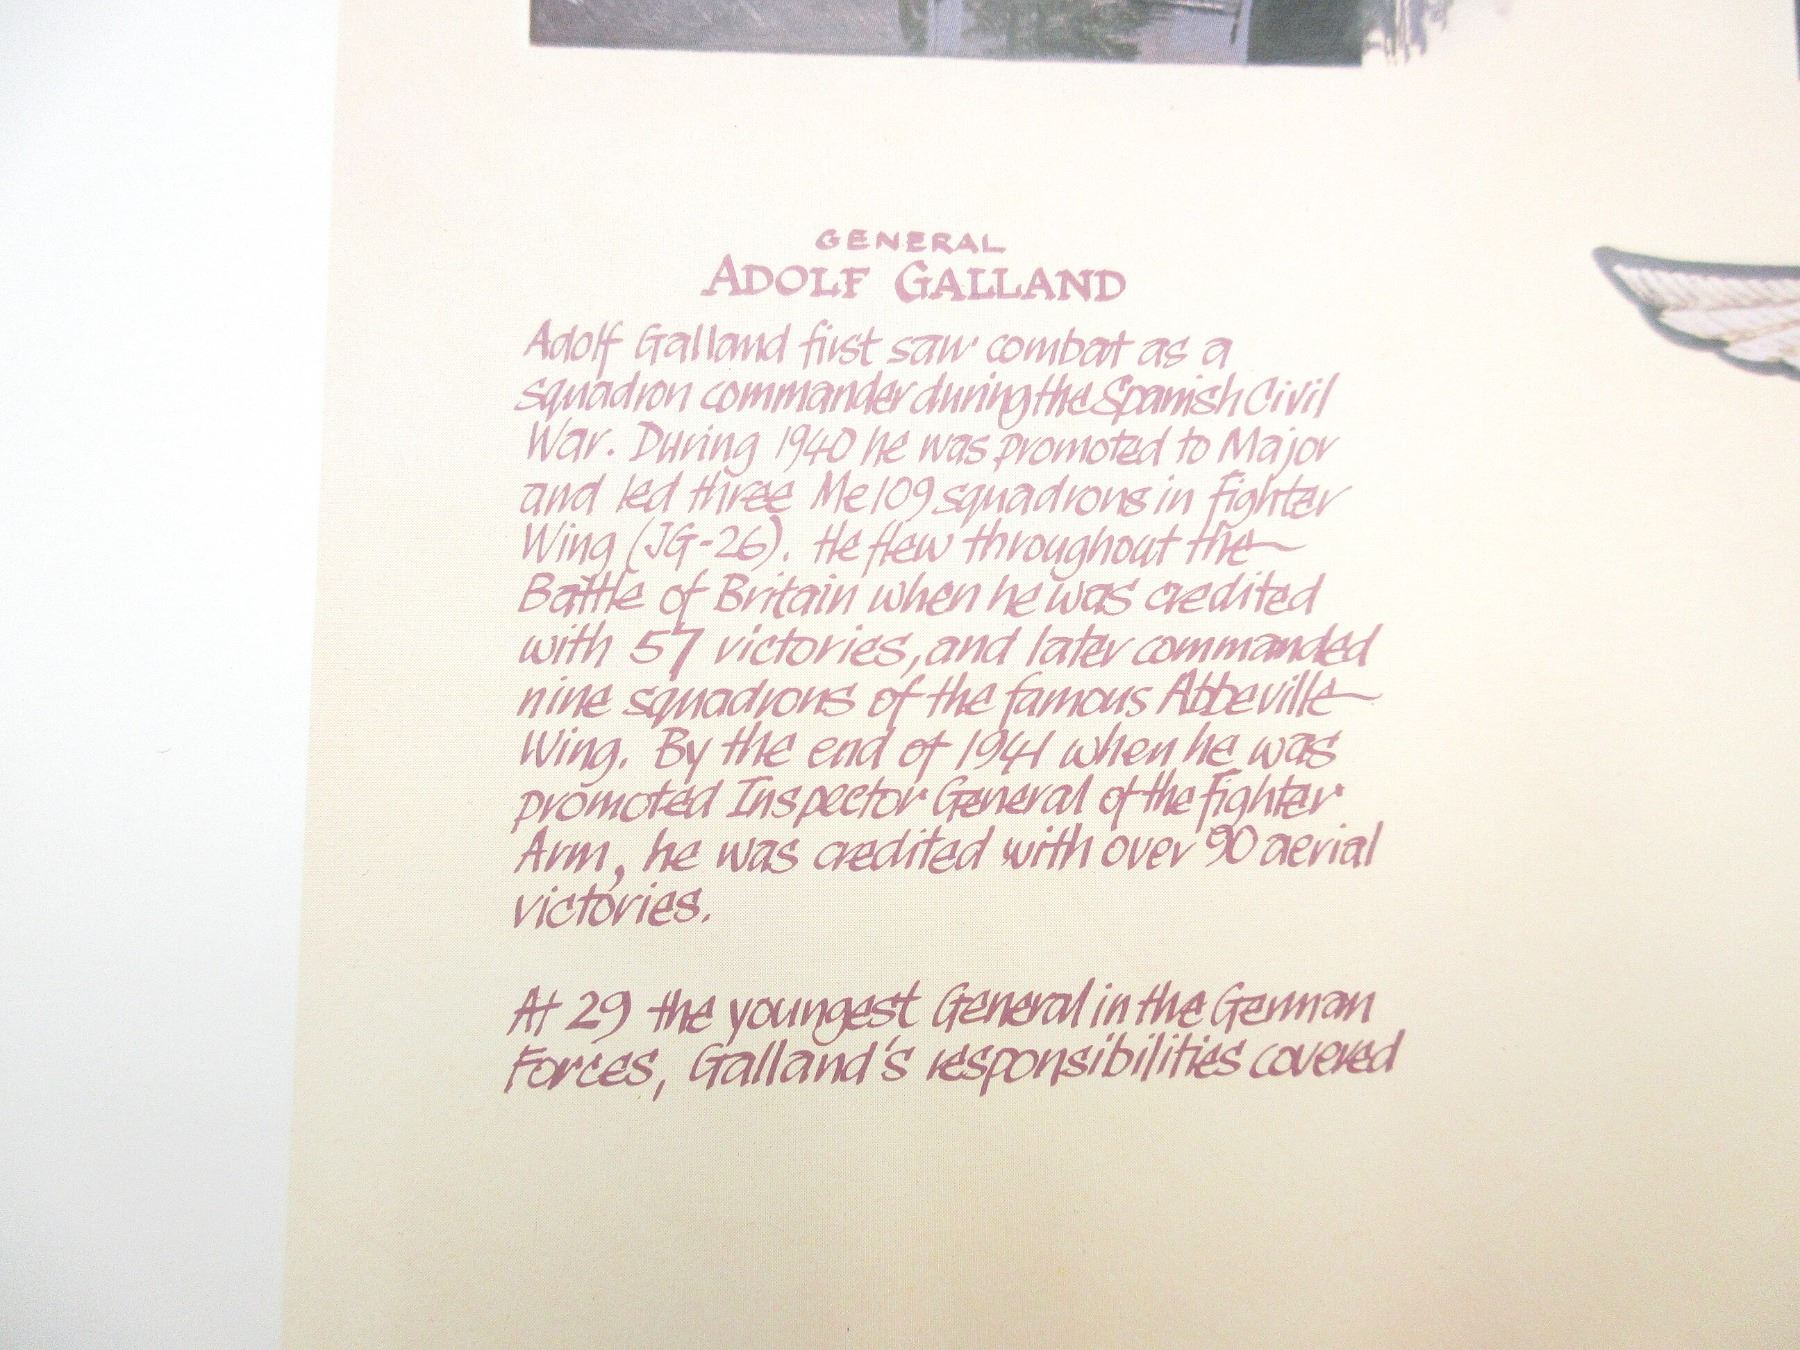 GENERAL
ADOLF GALLAND
Adolf Galland first saw combat as a
squadron commander during the Spanish Civil
War. During 1940 he was promoted to Major
and led three Me109 squadrons in Fighter
Wing (JG-26). He flew throughout the
Battle of Britain when he was credited
with 57 victories, and later commanded
nine squadrons of the famous Abbeville
Wing. By the end of 1941 when he was
promoted Inspector General of the Fighter
Arm, he was credited with over 90 aerial
victories.
At 29 the youngest General in the German
Forces, Galland's responsibilities covered